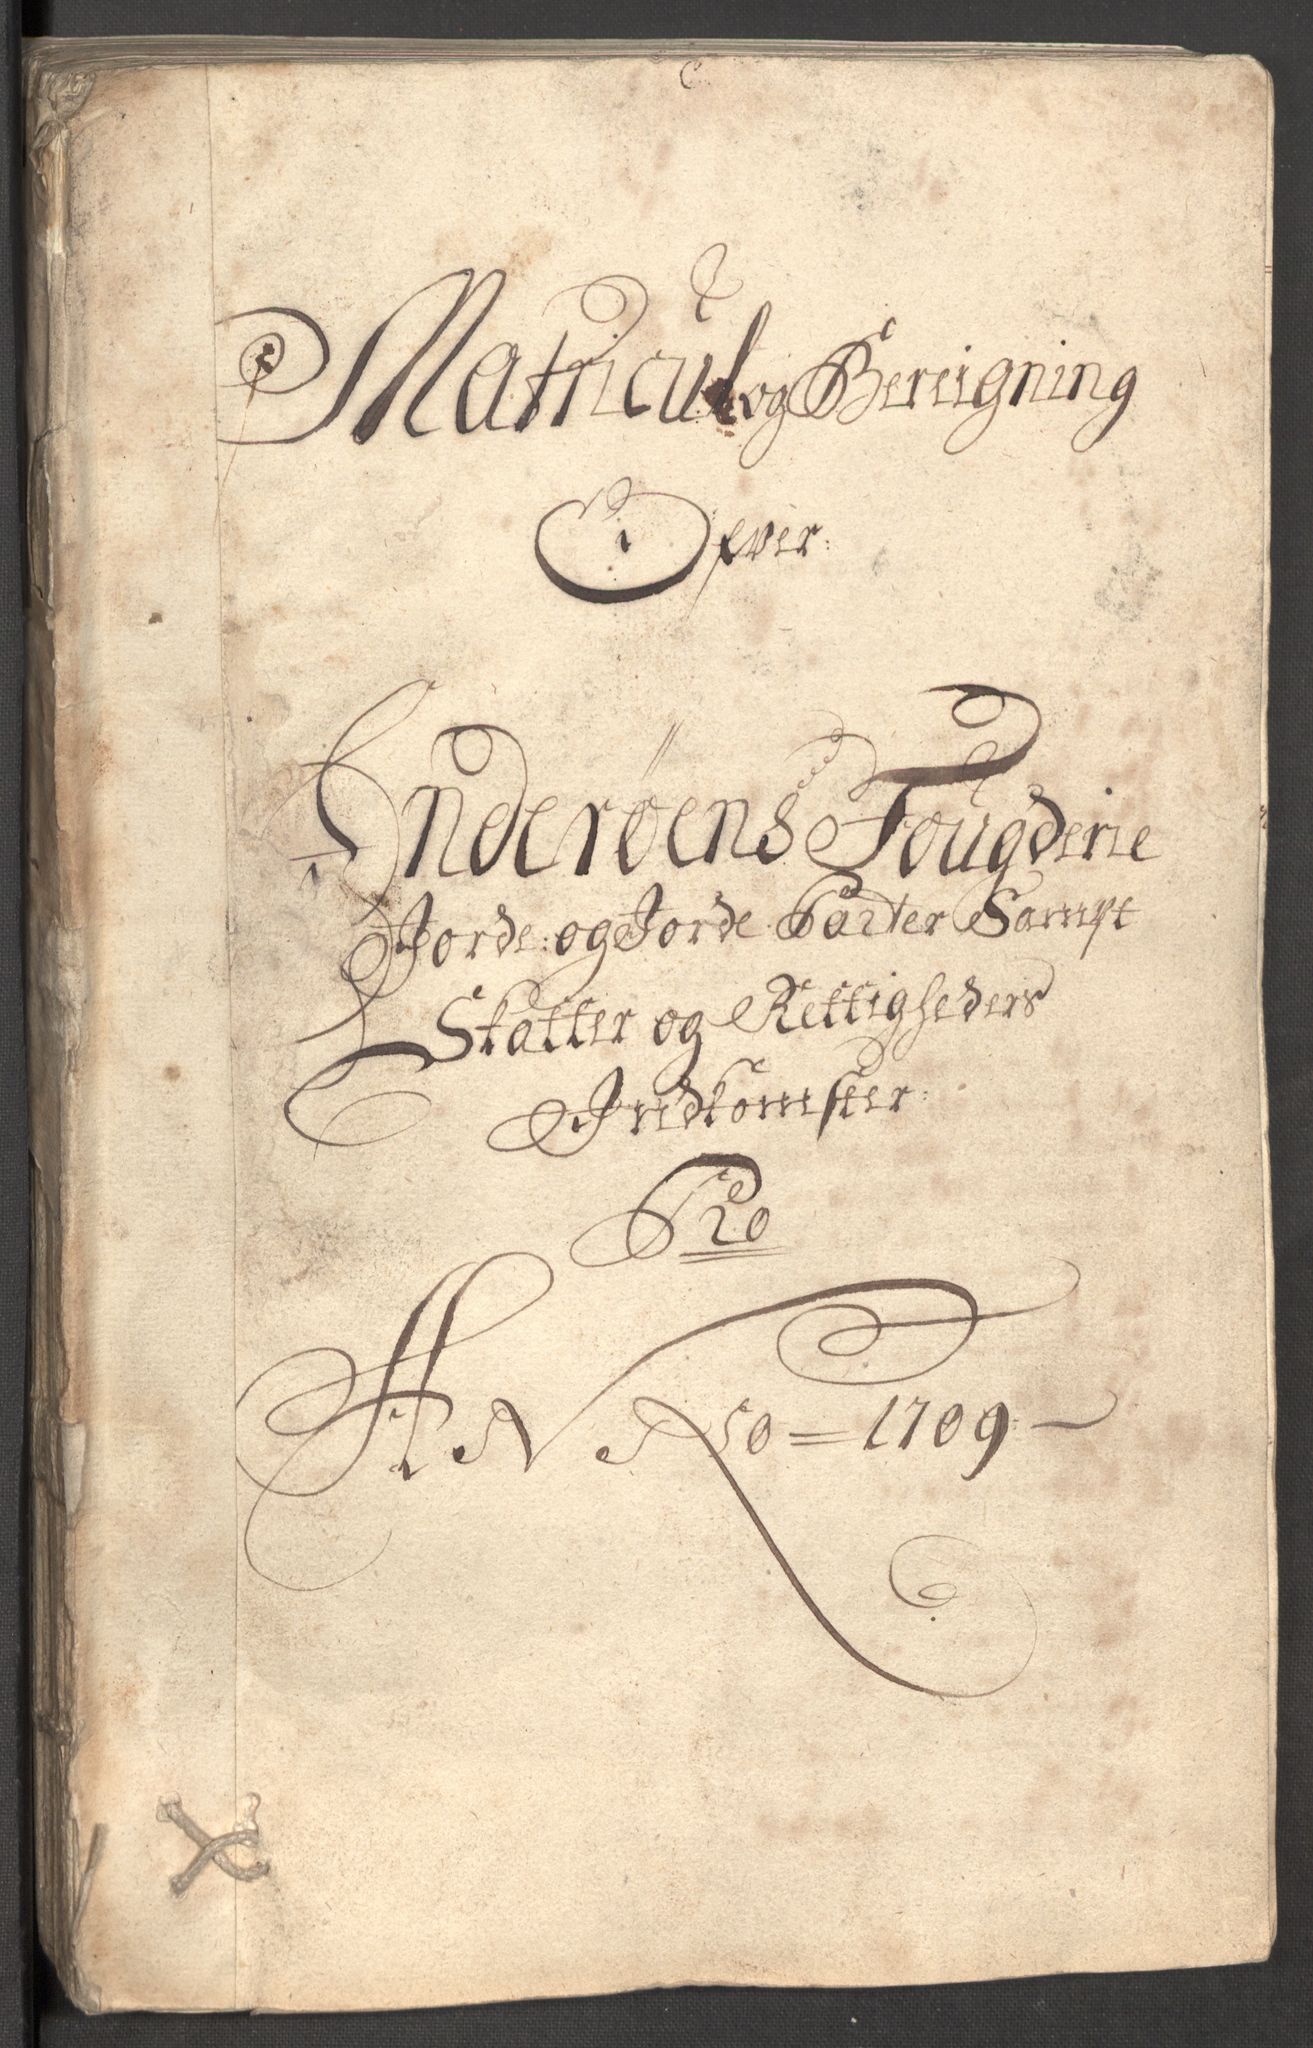 Matricul og Bereigning
Ofver:
Inderøens Fougderie
Jorde: og Jorde Parter Sampt
Skatter og Rettigheders
Indkomster:
Pro
ANNO = 1709